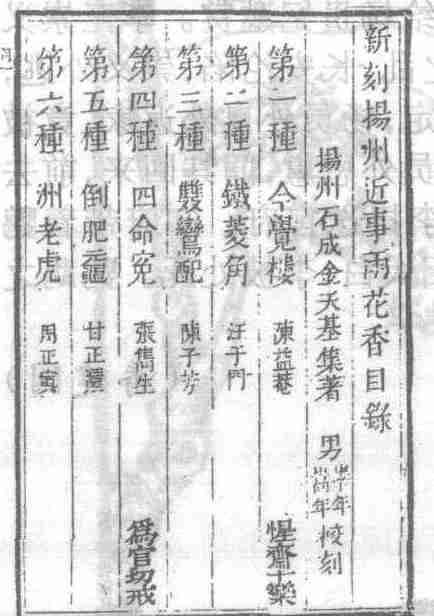 新刻揚州近事雨花香目錄
揚州石成金天基集著 男 年 年 校刻
第一種 今覺樓 陳益菴 惺齋十樂
第二種 鐵菱角 汪于門
第三種 雙鸞配 陳子芳
第四種 四命寃 張雋生 爲官切戒
第五種 倒肥黿 甘正還
第六種 洲老虎 周正寅